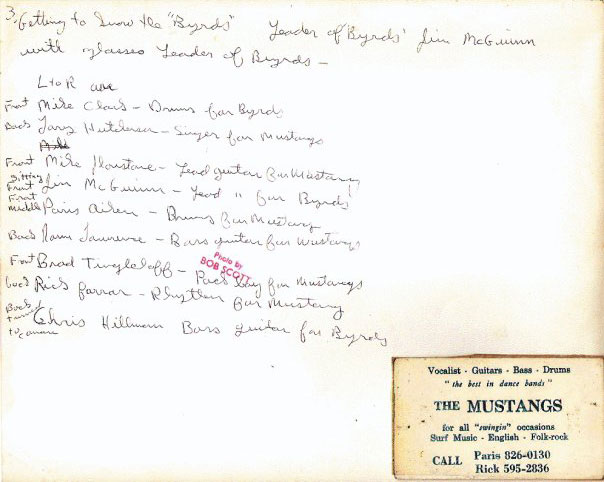 3. Getting to know the "Byrds" Leader of Byrds' Jim McGuinn
with glasses Leader of Byrds -
L to R are
Front Mike Clark - Drums for Byrds
Back Terry - Singer for Mustangs
Front Mike - Lead guitar for Mustang
Sitting Front Jim McGuinn - Lead " for Byrds
Front middle Paris - Drums for Mustang
Back Lawrence - Bass guitar for Mustangs
Front Brad - for Mustangs
back Rick Farrar - Rhythm for Mustang
Back Chris Hillman Bass guitar for Byrds
to camera
Photo by
BOB SCOTT
Vocalist - Guitars - Bass - Drums
"the best in dance bands"
THE MUSTANGS
for all "swingin" occasions
Surf Music - English - Folk-rock
CALL Paris 826-0130
Rick 595-2836